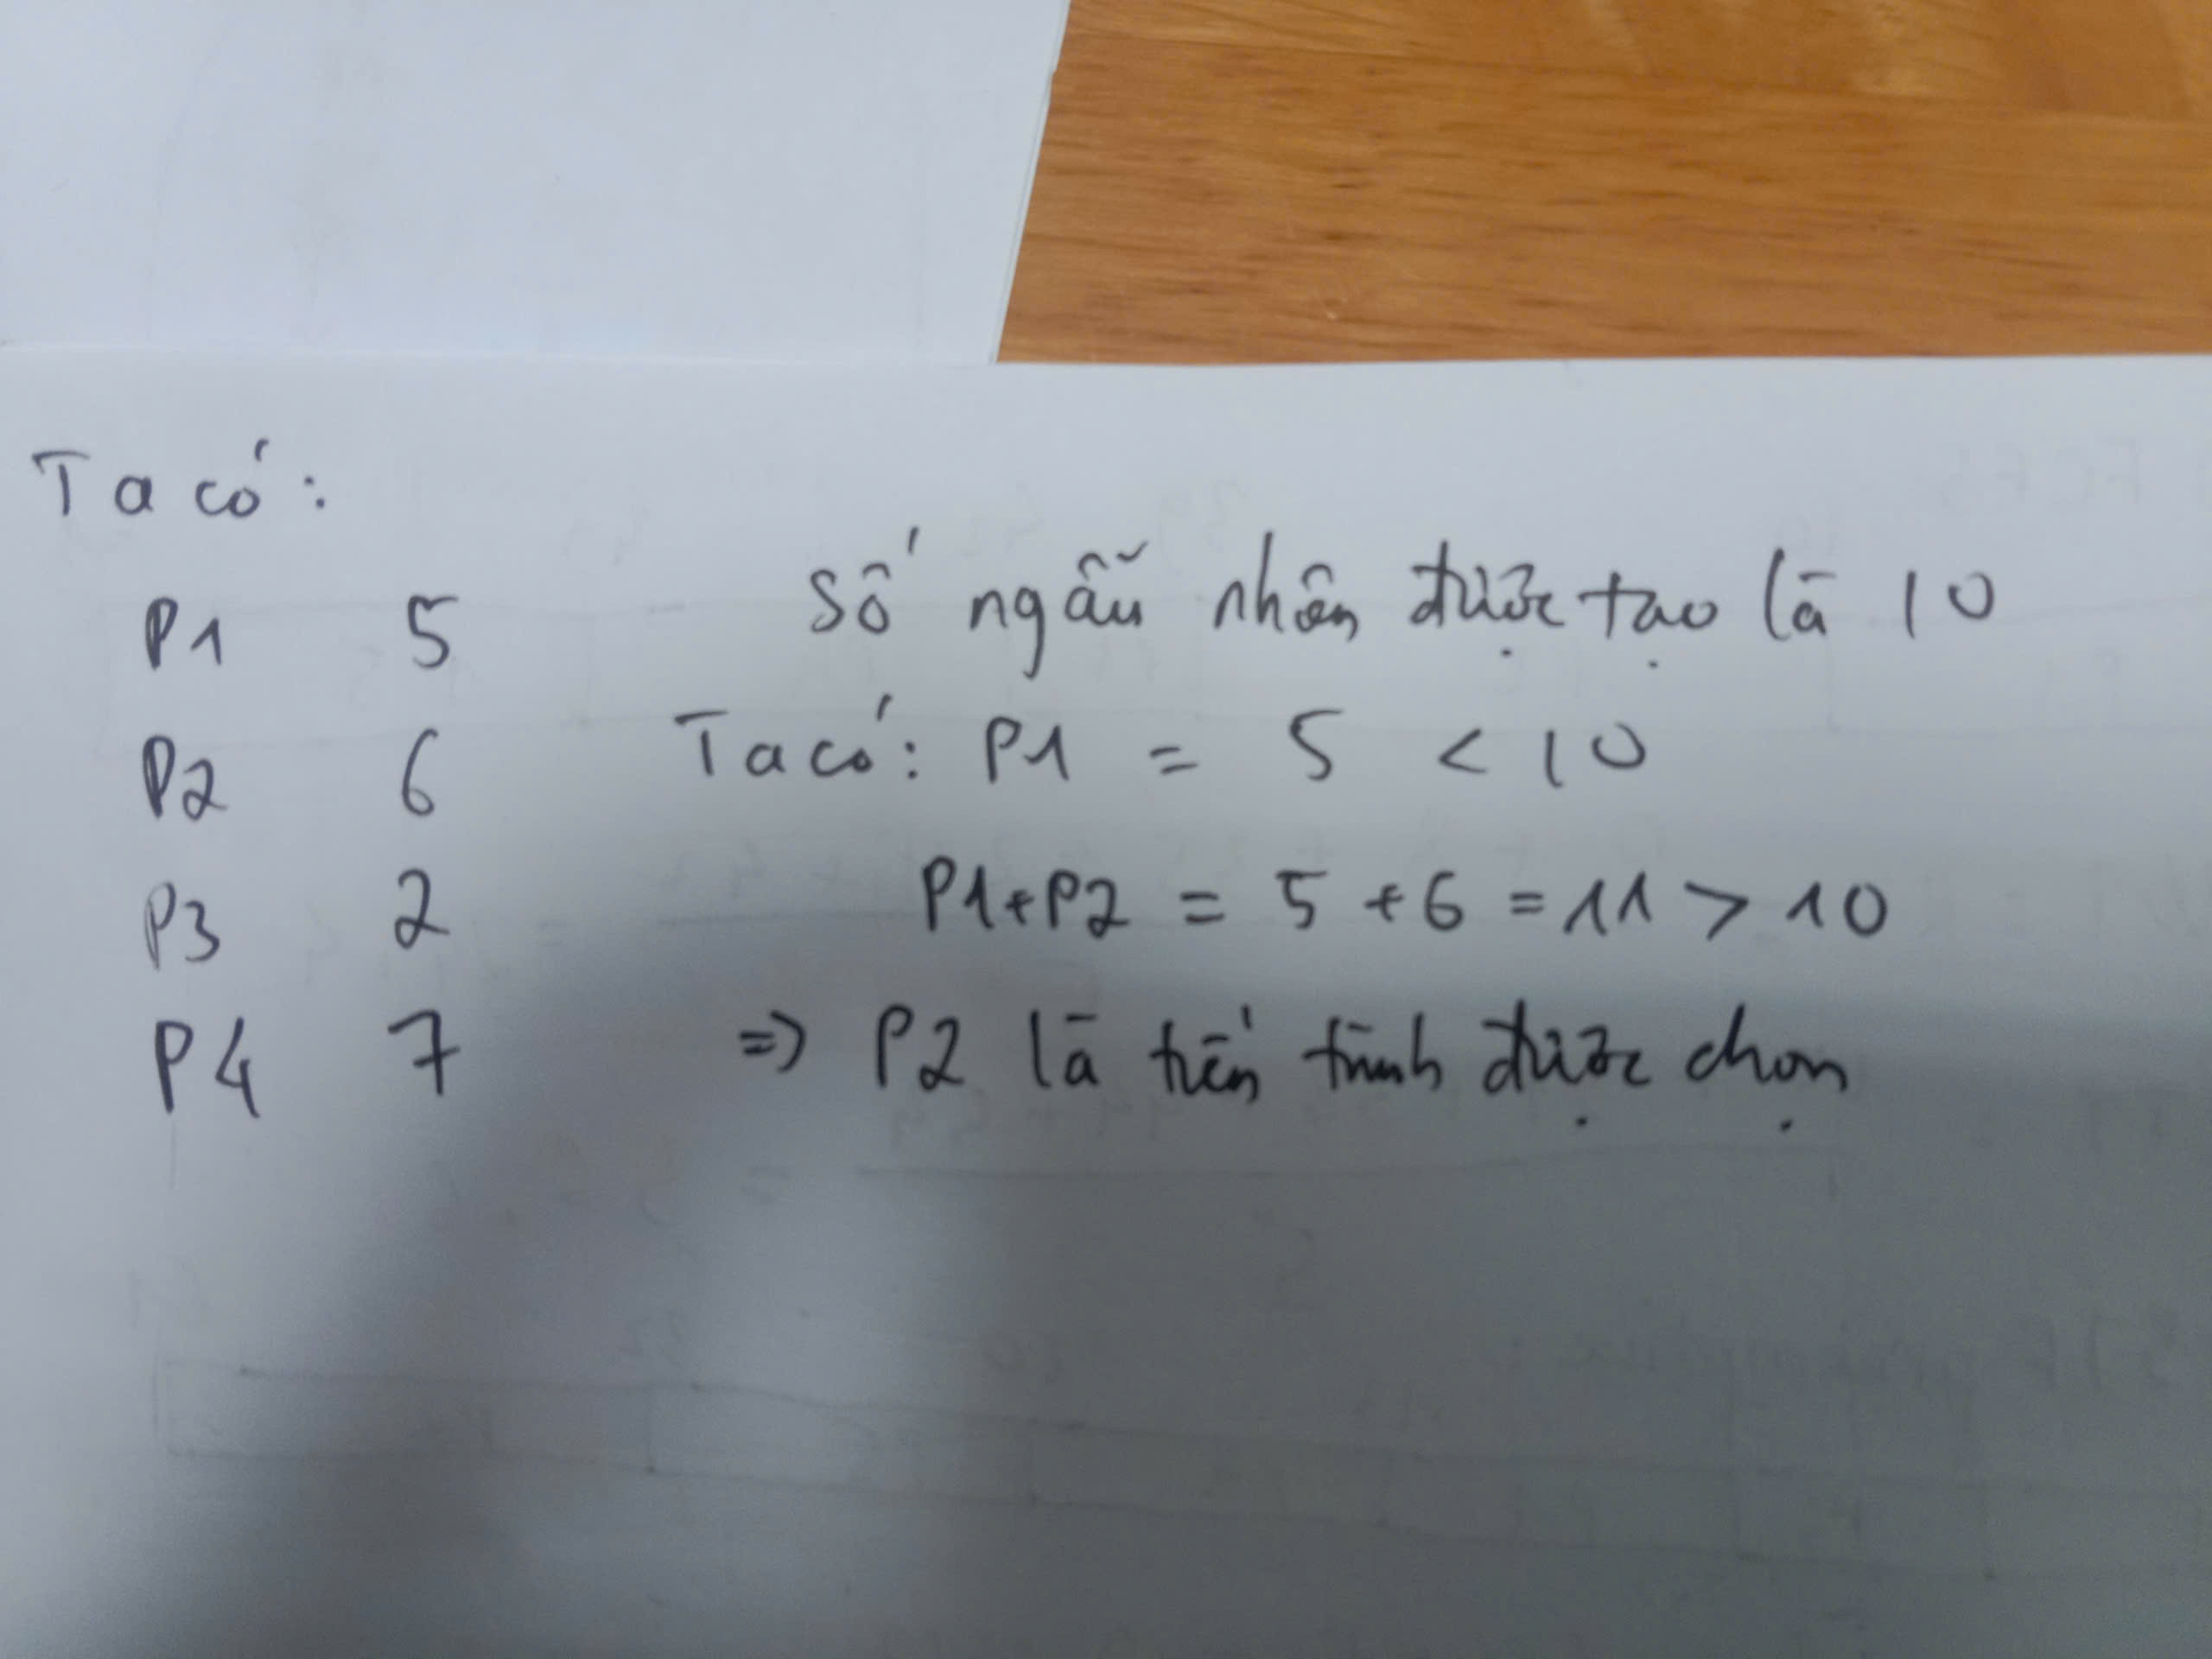 Ta có:
P1 5
P2 6
P3 2
P4 7
Số ngẫu nhiên được tạo là 10
Ta có: P1 = 5 < 10
P1+P2 = 5 + 6 = 11 > 10
=> P2 là tiến trình được chọn